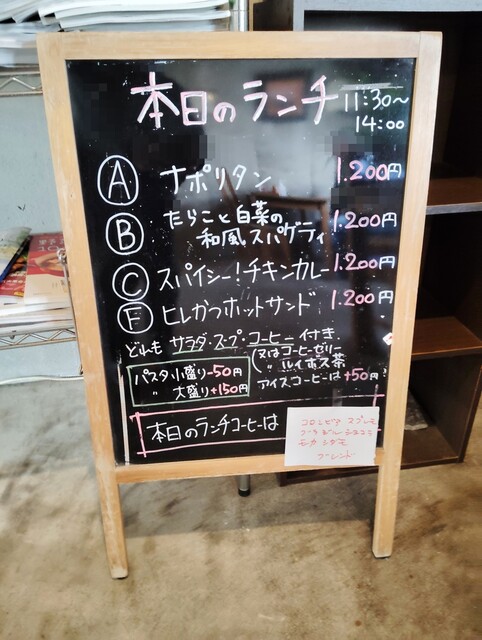 本日のランチ 11:30〜14:00
A ナポリタン 1.200円
B たらこと白菜の
和風スパゲティ 1.200円
C スパイシー!チキンカレー 1.200円
F ヒレかつホットサンド 1.200円
どれも サラダ・スープ・コーヒー付き
(又はコーヒーゼリー
〃 ルイボス茶
アイスコーヒーは+50円)
パスタ小盛り-50円
〃 大盛り+150円
本日のランチコーヒーは
コロンビア スプレモ
モカ シダモ
ブレンド